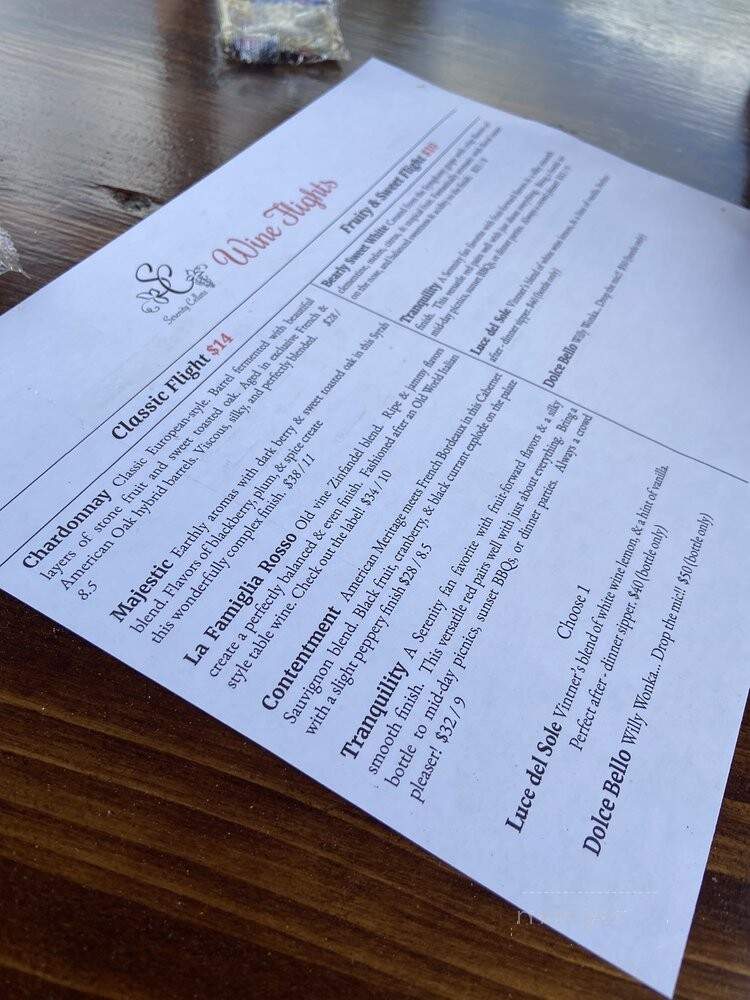 SC
Serenity Cellars
Wine Flights
Classic Flight $14
Chardonnay Classic European-style. Barrel fermented with beautiful
layers of stone fruit and sweet toasted oak. Aged in exclusive French &
American Oak hybrid barrels. Viscous, silky, and perfectly blended. $28 /
8.5
Majestic Earthly aromas with dark berry & sweet toasted oak in this Syrah
blend. Flavors of blackberry, plum, & spice create
this wonderfully complex finish. $38 / 11
La Famiglia Rosso Old vine Zinfandel blend. Ripe & jammy flavors
create a perfectly balanced & even finish. Fashioned after an Old World Italian
style table wine. Check out the label $34 / 10
Contentment American Meritage meets French Bordeaux in this Cabernet
Sauvignon blend. Black fruit, cranberry, & black currant explode on the palate
with a slight peppery finish $28 / 8.5
Tranquility A Serenity fan favorite with fruit-forward flavors & a silky
smooth finish. This versatile red pairs well with just about everything. Bring a
bottle to mid-day picnics, sunset BBQs, or dinner parties. Always a crowd
pleaser! $32 / 9
Choose 1
Luce del Sole Vintner's blend of white wine lemon, & a hint of vanilla.
Perfect after - dinner sipper. $40 (bottle only)
Dolce Bello Willy Wonka... Drop the mic!! $50 (bottle only)
Fruity & Sweet Flight $10
Bearly Sweet White
Tranquility A Serenity fan favorite with fruit-forward flavors & a silky smooth
finish. This versatile red pairs well with just about everything.
mid-day picnics, sunset BBQs, or dinner parties.
Luce del Sole Vintner's blend of white wine lemon, & a hint of vanilla.
after - dinner sipper. $40 (bottle only)
Dolce Bello Willy Wonka... Drop the mic!! $50 (bottle only)